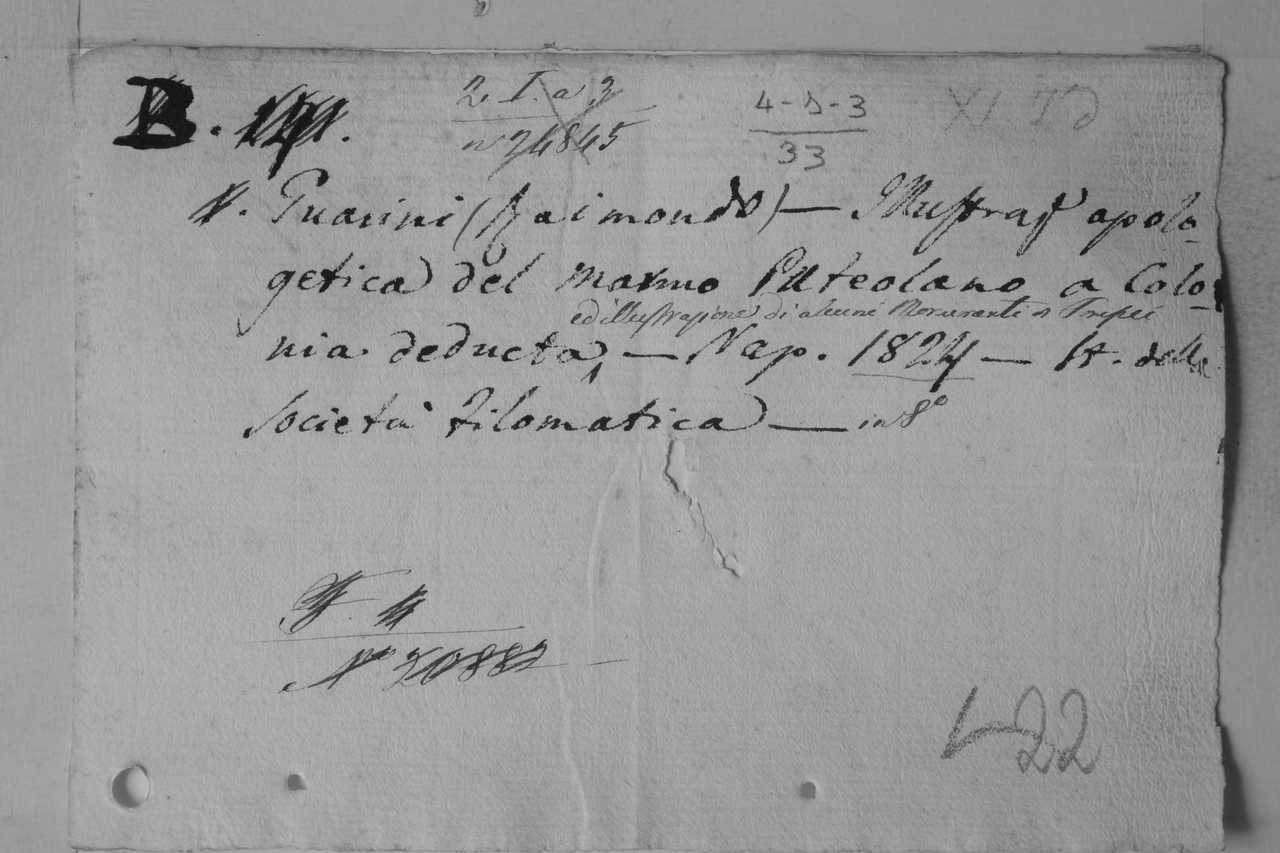 B.
2 I. a 3
n 24845
4-D-3
33
XI Td
Guarini (Raimondo) — Illustraz apolo-
getica del marmo Puteolano a Colo-
ed illustrazione di alcuni Monumenti
nia deducta, — Nap. 1824 — St. della
Società Filomatica — in 8°
N° 20882
22